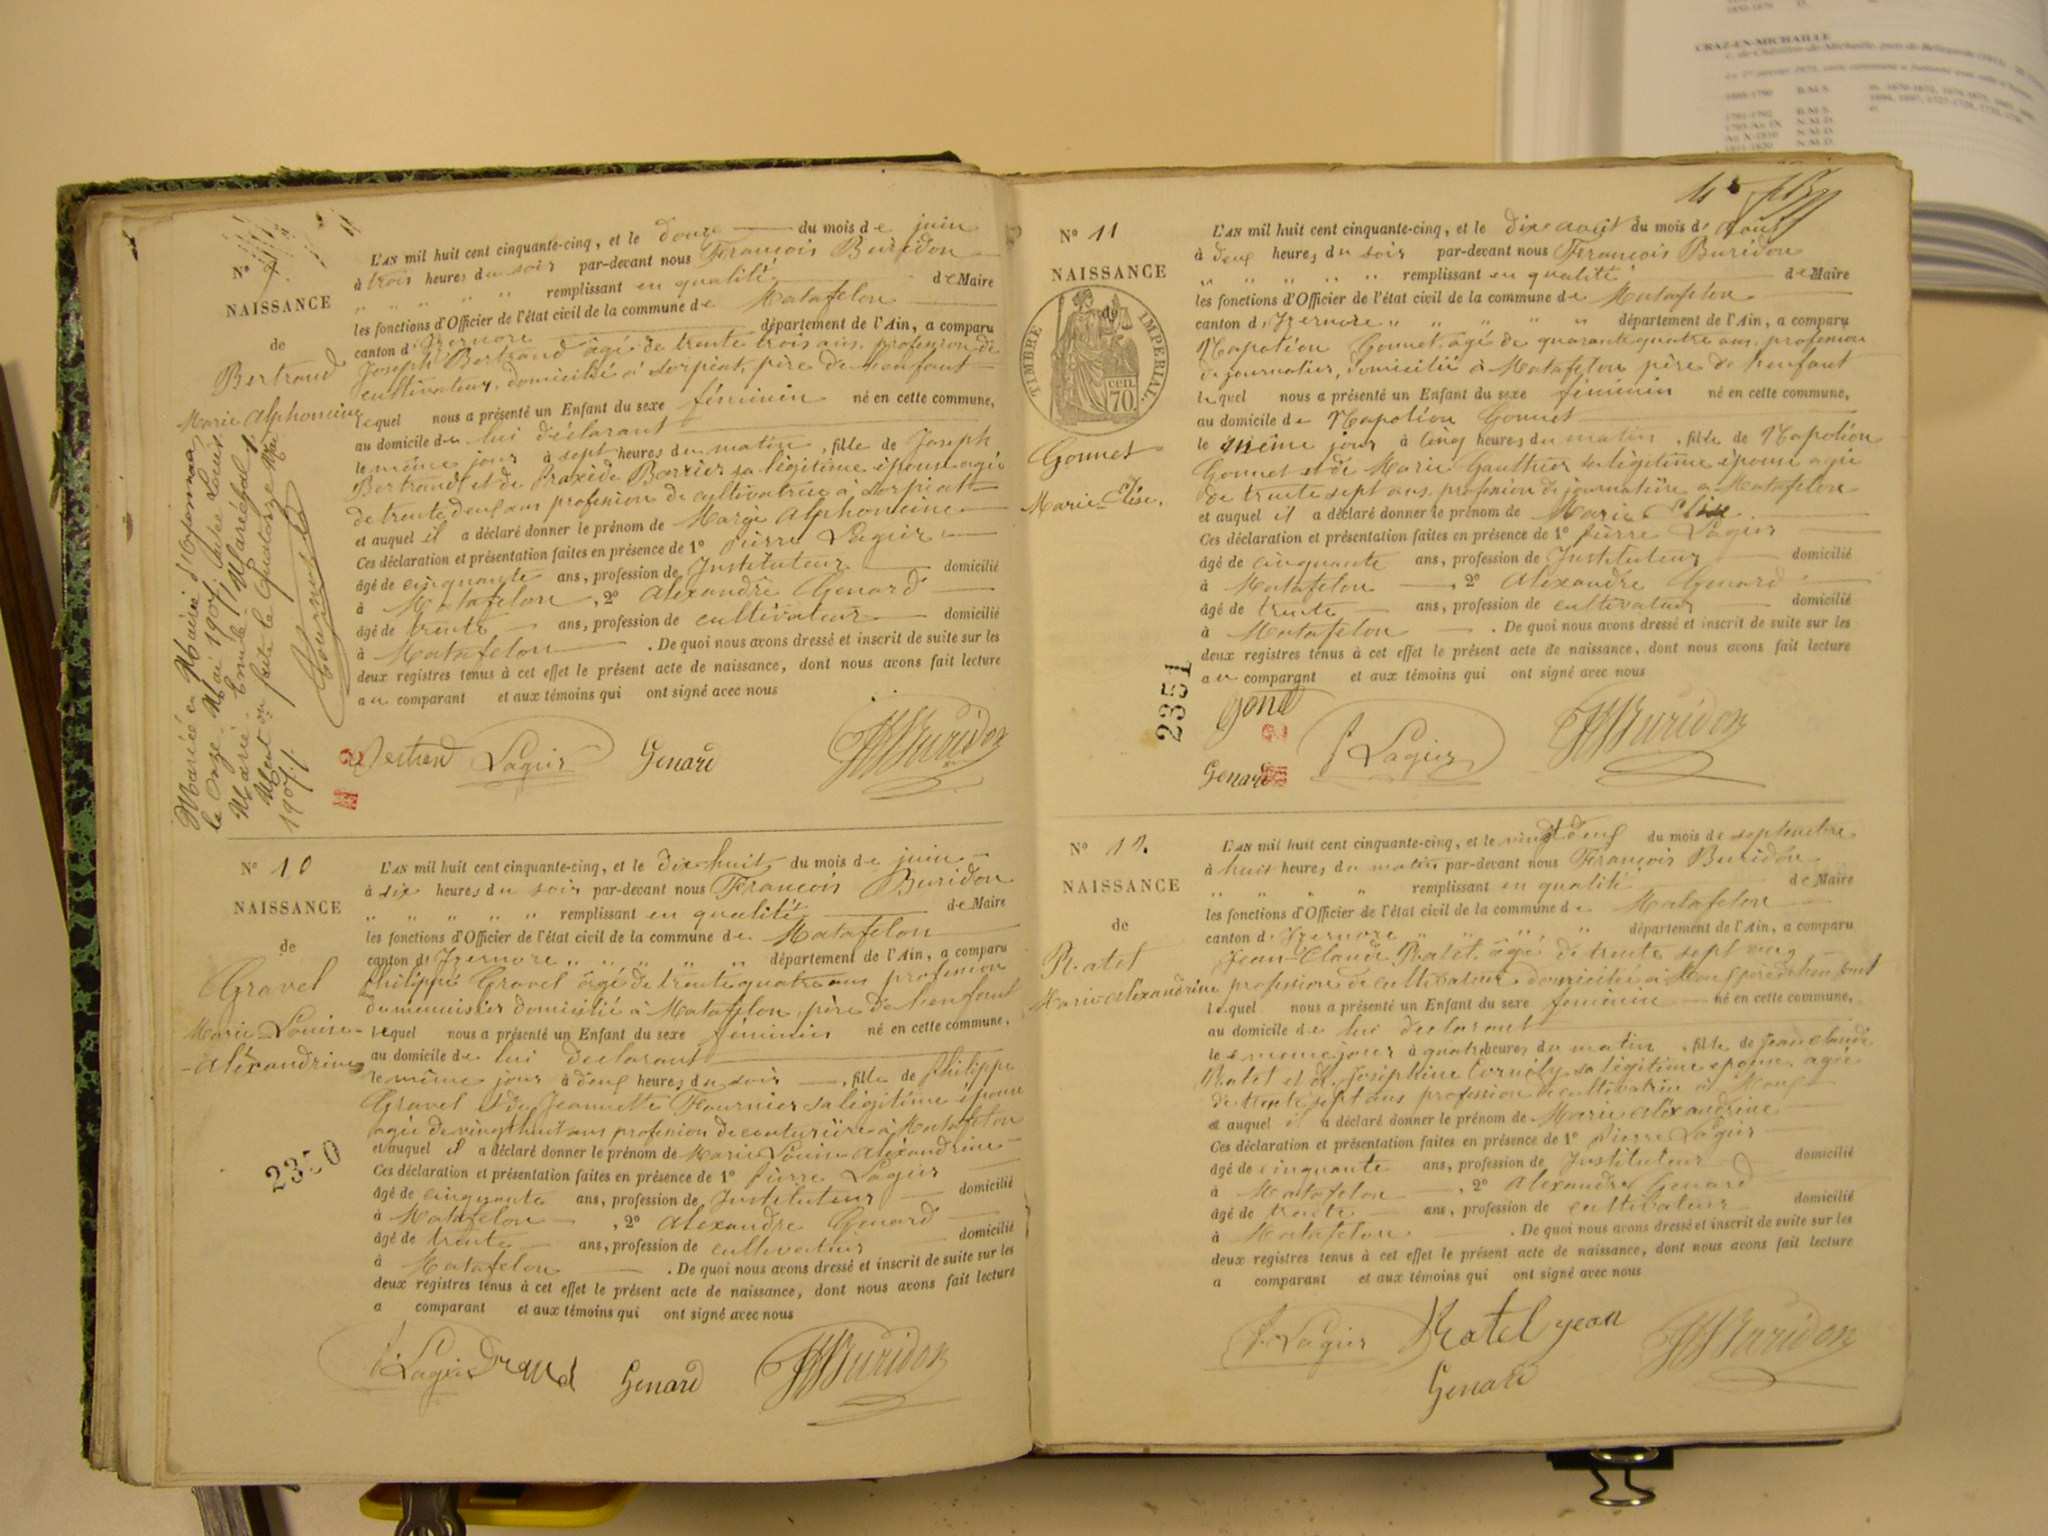 N° 9
NAISSANCE
de
Bertrand
Marie Alphonsine
Mariée en Mairie d'Oyonnax
le onze Mai 1907, avec Louis
Marie Emile Maréchal
Mention faite le quatorze Mai
1907.
L'AN mil huit cent cinquante-cinq, et le douze du mois de juin
à trois heures du soir par-devant nous François Buridon
" " " " remplissant en qualité de Maire
les fonctions d'Officier de l'état civil de la commune de Matafelon
canton d'Izernore département de l'Ain, a comparu
Joseph Bertrand âgé de trente trois ans, profession de
cultivateur, domicilié à Corpiat, père de l'enfant
lequel nous a présenté un Enfant du sexe féminin né en cette commune,
au domicile de lui déclarant
le même jour à sept heures du matin, fille de Joseph
Bertrand et de Praxède Berrier sa légitime épouse agée
de trente deux ans profession de cultivatrice à Corpiat
et auquel il a déclaré donner le prénom de Marie Alphonsine
Ces déclaration et présentation faites en présence de 1° pierre Lagier
âgé de cinquante ans, profession de Instituteur domicilié
à Matafelon, 2° Alexandre Genard
âgé de trente ans, profession de cultivateur domicilié
à Matafelon. De quoi nous avons dressé et inscrit de suite sur les
deux registres tenus à cet effet le présent acte de naissance, dont nous avons fait lecture
au comparant et aux témoins qui ont signé avec nous
Bertrand Lagier Genard Buridon
N° 10
NAISSANCE
de
Gravel
Marie-Louise
-Alexandrine
2350
L'AN mil huit cent cinquante-cinq, et le dix huit du mois de juin
à six heures du soir par-devant nous François Buridon
" " " " " remplissant en qualité de Maire
les fonctions d'Officier de l'état civil de la commune de Matafelon
canton d'Izernore " " " " " département de l'Ain, a comparu
philippe Gravel âgé de trente quatre ans profession
de menuisier domicilié à Matafelon, père de l'enfant
lequel nous a présenté un Enfant du sexe féminin né en cette commune,
au domicile de lui declarant
le même jour à deux heures du soir, fille de philippe
Gravel et de Jeannette Fournier sa légitime épouse
agée de vingt huit ans profession de couturière à Matafelon
et auquel il a déclaré donner le prénom de Marie Louise Alexandrine
Ces déclaration et présentation faites en présence de 1° pierre Lagier
âgé de cinquante ans, profession de Instituteur domicilié
à Matafelon, 2° Alexandre Genard
âgé de trente ans, profession de cultivateur domicilié
à Matafelon. De quoi nous avons dressé et inscrit de suite sur les
deux registres tenus à cet effet le présent acte de naissance, dont nous avons fait lecture
a comparant et aux témoins qui ont signé avec nous
Lagier Genard Buridon
N° 11
NAISSANCE
de
TIMBRE IMPERIAL
70 cen.
Gonnet
Marie-Elise.
2351
L'AN mil huit cent cinquante-cinq, et le dix août du mois d'août
à deux heures du soir par-devant nous François Buridon
" " " " " remplissant en qualité de Maire
les fonctions d'Officier de l'état civil de la commune de Matafelon
canton d'Izernore " " " " " département de l'Ain, a comparu
Napoléon Gonnet, âgé de quarante quatre ans, profession
de journalier, domicilié à Matafelon père de l'enfant
lequel nous a présenté un Enfant du sexe féminin né en cette commune,
au domicile de Napoléon Gonnet
le même jour à cinq heures du matin, fille de Napoléon
Gonnet et de Marie Gauthier sa légitime épouse agée
de trente sept ans, profession de journalière à Matafelon
et auquel il a déclaré donner le prénom de Marie Elise
Ces déclaration et présentation faites en présence de 1° pierre Lagier
âgé de cinquante ans, profession de Instituteur domicilié
à Matafelon, 2° Alexandre Genard
âgé de trente ans, profession de cultivateur domicilié
à Matafelon. De quoi nous avons dressé et inscrit de suite sur les
deux registres tenus à cet effet le présent acte de naissance, dont nous avons fait lecture
au comparant et aux témoins qui ont signé avec nous
P. Lagier Buridon
Genard
N° 12.
NAISSANCE
de
Ratel
Marie-Alexandrine
L'AN mil huit cent cinquante-cinq, et le vingt deux du mois de septembre
à huit heures du matin par-devant nous François Buridon
" " " " remplissant en qualité de Maire
les fonctions d'Officier de l'état civil de la commune de Matafelon
canton d'Izernore " " " " département de l'Ain, a comparu
Jean-Claude Ratel, âgé de trente sept ans
profession de cultivateur domicilié à père de l'enfant
lequel nous a présenté un Enfant du sexe féminin né en cette commune,
au domicile de lui declarant
le même jour à quatre heures du matin, fille de Jean Claude
Ratel et de Joséphine Cornély sa légitime épouse agée
de trente sept ans profession de cultivatrice à
et auquel il a déclaré donner le prénom de Marie Alexandrine
Ces déclaration et présentation faites en présence de 1° pierre Lagier
âgé de cinquante ans, profession de Instituteur domicilié
à Matafelon, 2° Alexandre Genard
âgé de trente ans, profession de cultivateur domicilié
à Matafelon. De quoi nous avons dressé et inscrit de suite sur les
deux registres tenus à cet effet le présent acte de naissance, dont nous avons fait lecture
a comparant et aux témoins qui ont signé avec nous
P. Lagier Ratel jean Buridon
Genard
CRAZ-EN-MICHAILLE